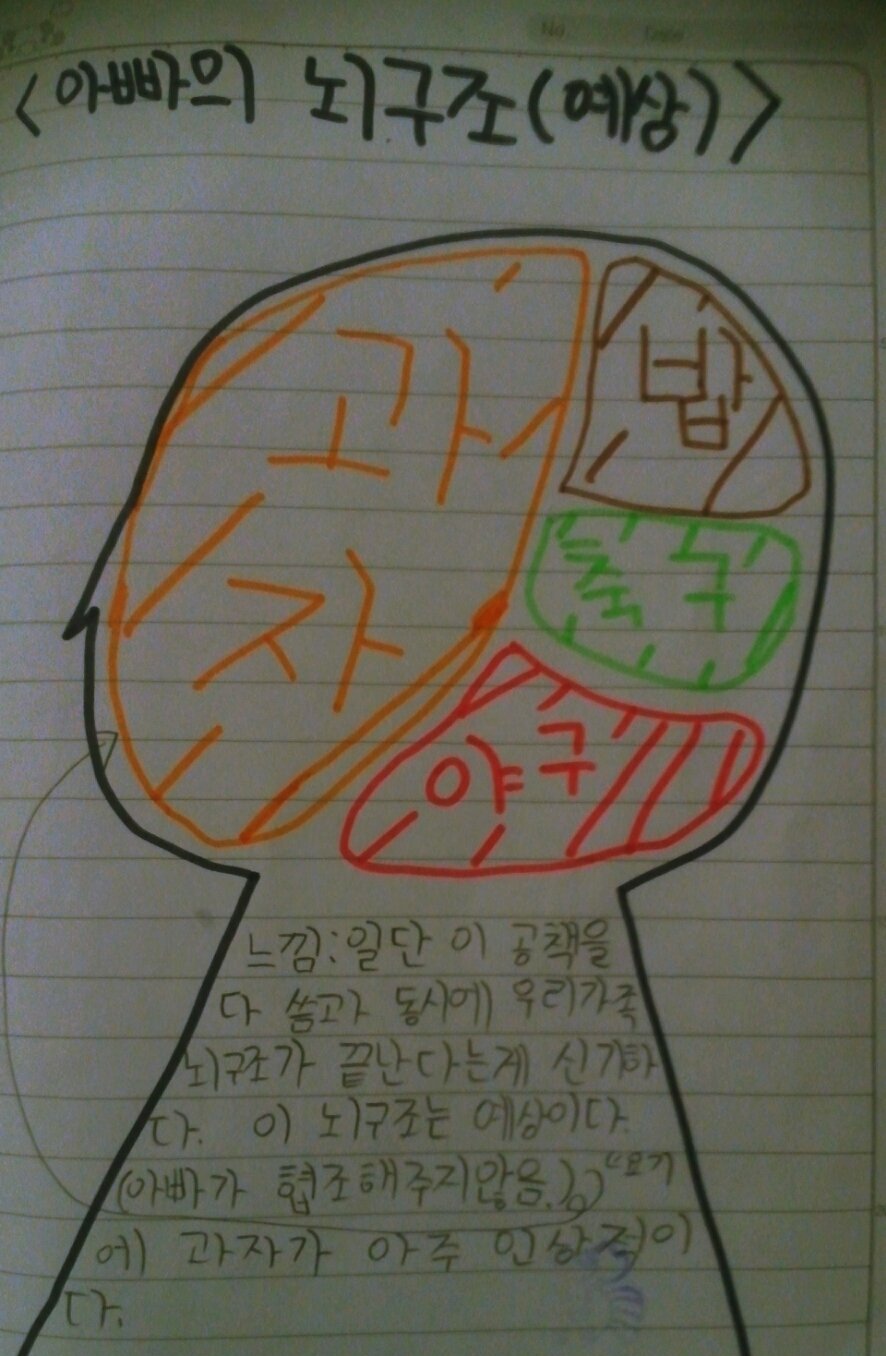 <아빠의 뇌구조(예상)>
과
자
밥
축구
야구
느낌:일단 이 공책을
다 씀고가 동시에 우리가족
뇌구조가 끝난다는게 신기하
다. 이 뇌구조는 예상이다.
(아빠가 협조해주지않음.) "요기
에 과자가 아주 인상적이
다.